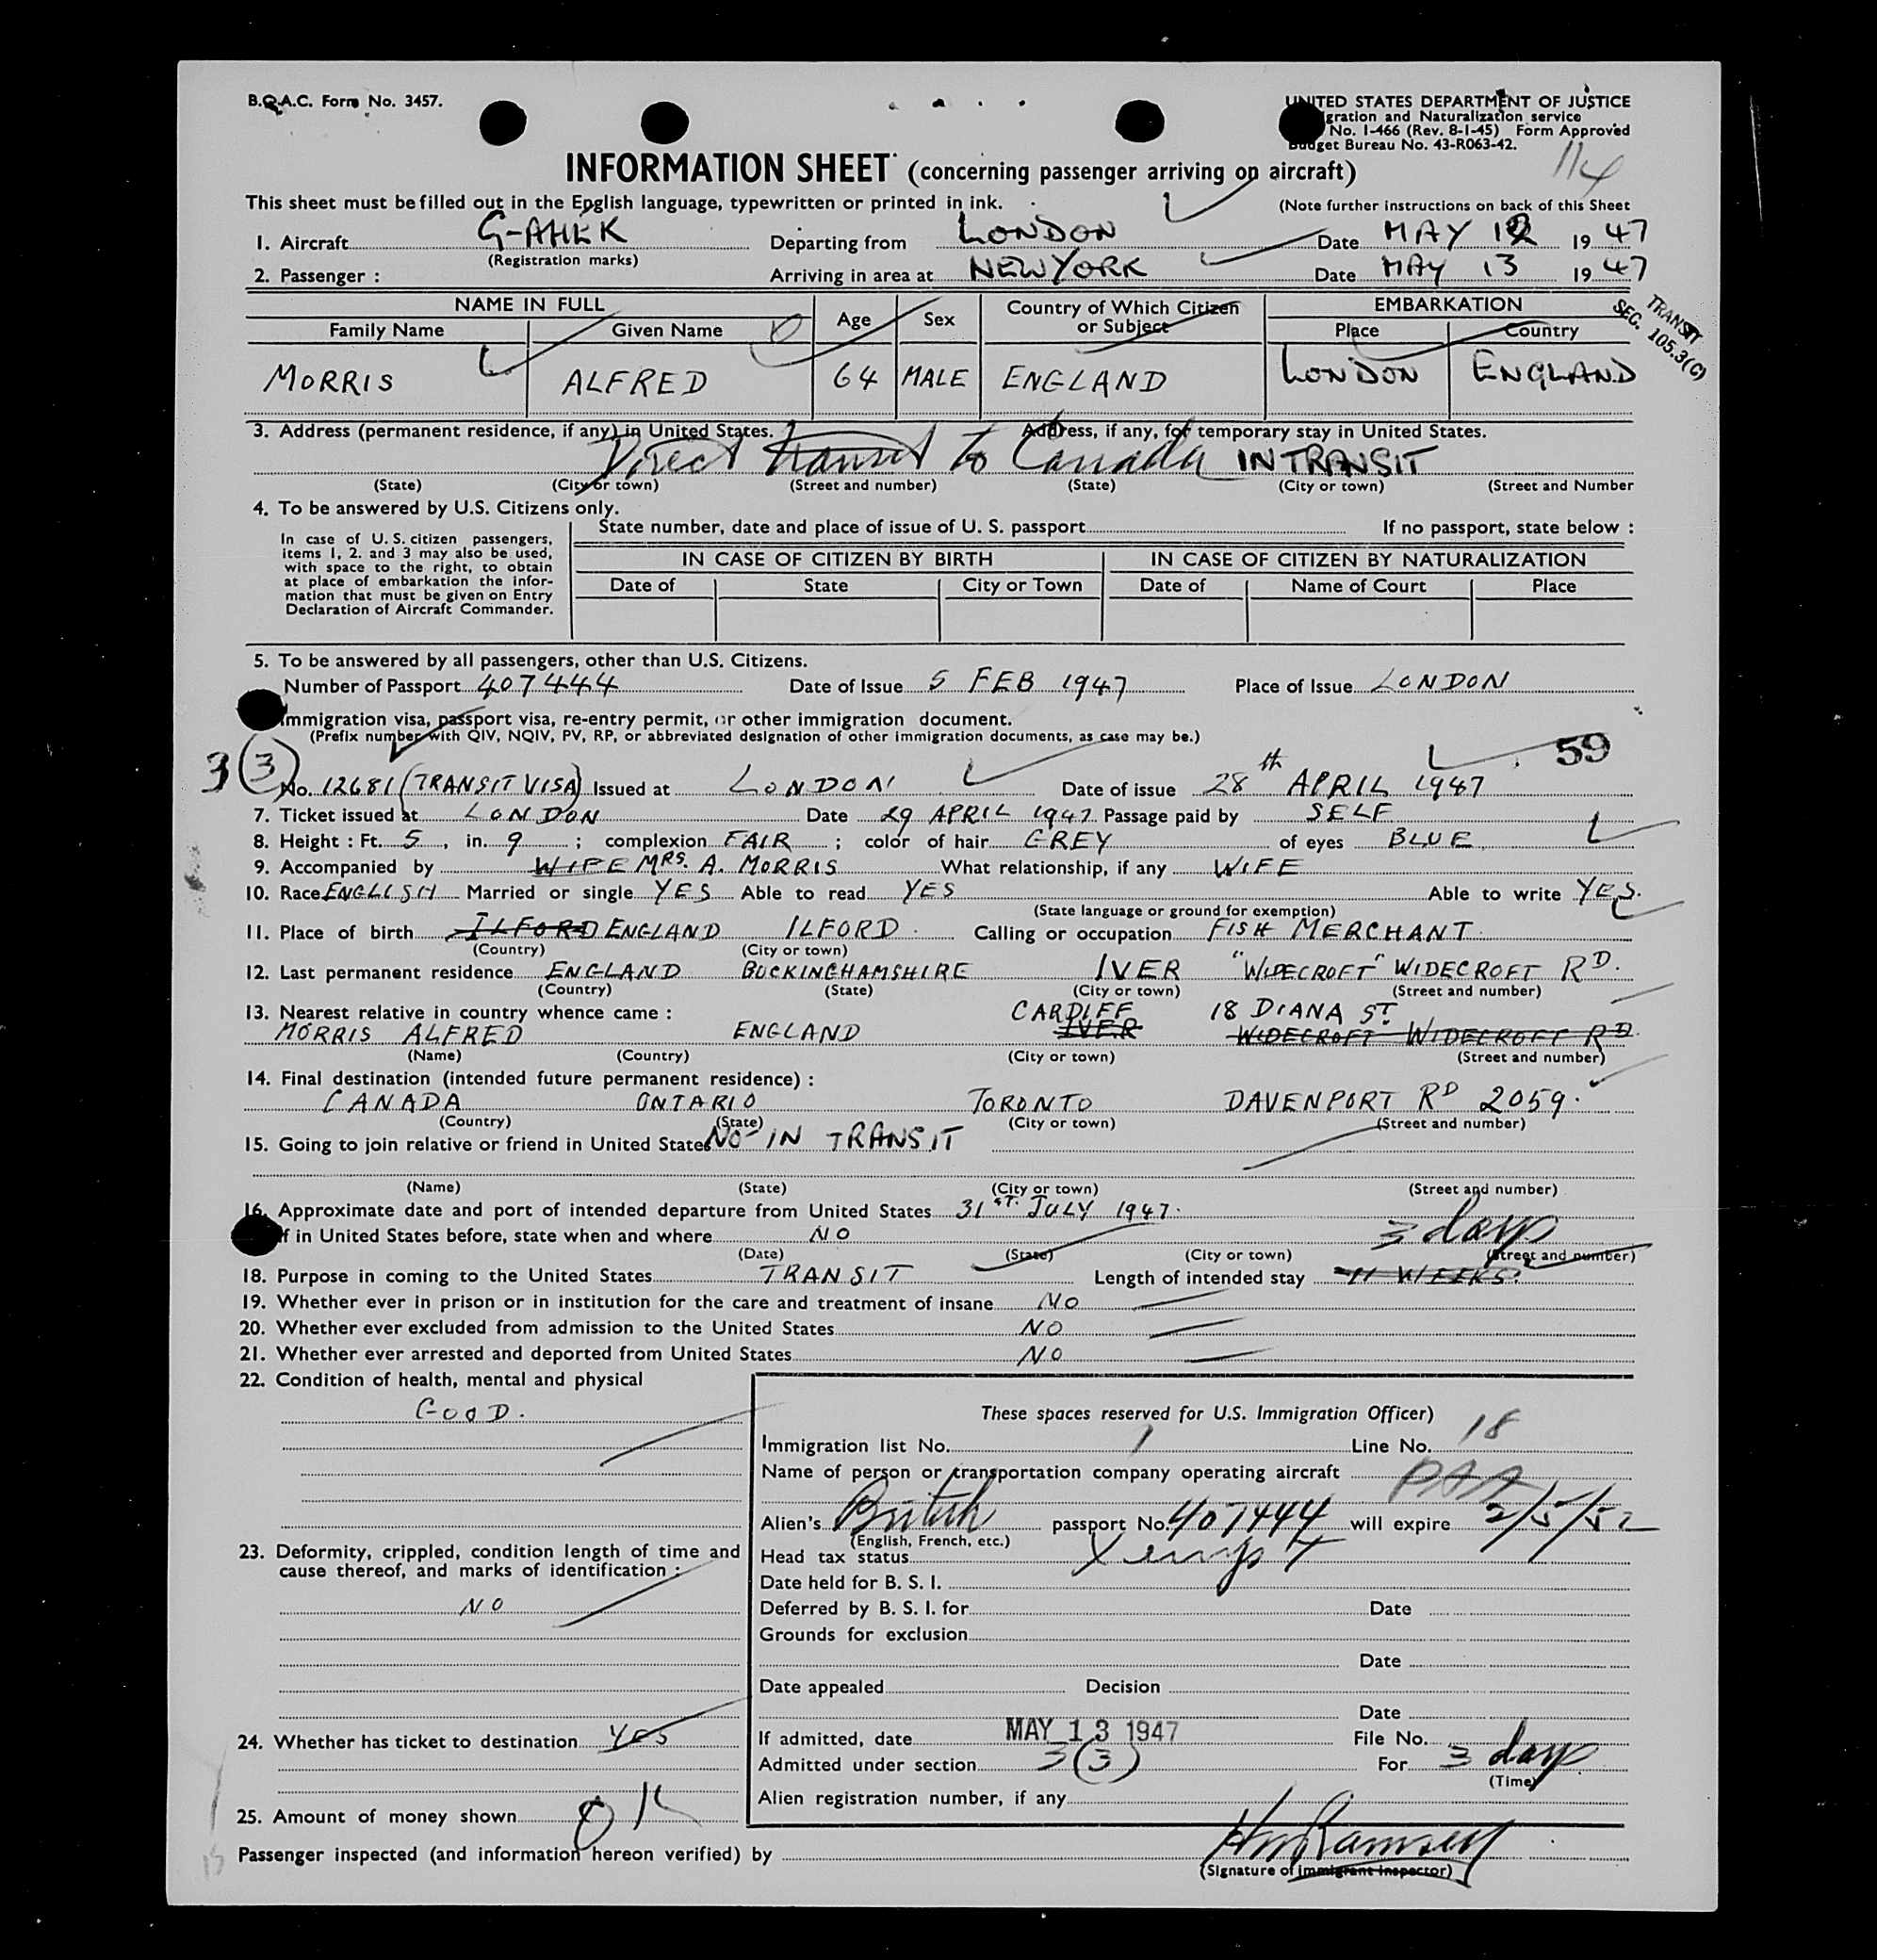 B.O.A.C. Form No. 3457.
UNITED STATES DEPARTMENT OF JUSTICE
gration and Naturalization service
No. I-466 (Rev. 8-1-45) Form Approved
Budget Bureau No. 43-R063-42.
114
INFORMATION SHEET (concerning passenger arriving on aircraft)
This sheet must be filled out in the English language, typewritten or printed in ink. (Note further instructions on back of this Sheet
1. Aircraft G-AHEK Departing from LONDON Date MAY 12 19 47
(Registration marks)
2. Passenger : Arriving in area at NEW YORK Date MAY 13 19 47
TRANSIT
SEC. 105.3(C)
NAME IN FULL Age Sex Country of Which Citizen or Subject EMBARKATION
Family Name Given Name Place Country
MORRIS ALFRED 64 MALE ENGLAND LONDON ENGLAND
3. Address (permanent residence, if any) in United States. Address, if any, for temporary stay in United States.
Direct transit to Canada IN TRANSIT
(State) (City or town) (Street and number) (State) (City or town) (Street and Number
4. To be answered by U.S. Citizens only.
State number, date and place of issue of U. S. passport If no passport, state below :
In case of U. S. citizen passengers,
items 1, 2. and 3 may also be used,
with space to the right, to obtain
at place of embarkation the infor-
mation that must be given on Entry
Declaration of Aircraft Commander.
IN CASE OF CITIZEN BY BIRTH IN CASE OF CITIZEN BY NATURALIZATION
Date of State City or Town Date of Name of Court Place
5. To be answered by all passengers, other than U.S. Citizens.
Number of Passport 407444 Date of Issue 5 FEB 1947 Place of Issue LONDON
Immigration visa, passport visa, re-entry permit, or other immigration document.
(Prefix number with QIV, NQIV, PV, RP, or abbreviated designation of other immigration documents, as case may be.)
59
3(3)
No. 12681 (TRANSIT VISA) Issued at LONDON Date of issue 28th APRIL 1947
7. Ticket issued at LONDON Date 29 APRIL 1947 Passage paid by SELF
8. Height : Ft. 5, in. 9 ; complexion FAIR ; color of hair GREY of eyes BLUE
9. Accompanied by WIFE MRS. A. MORRIS What relationship, if any WIFE
10. Race ENGLISH Married or single YES Able to read YES Able to write YES.
(State language or ground for exemption)
11. Place of birth ILFORD ENGLAND ILFORD. Calling or occupation FISH MERCHANT.
(Country) (City or town)
12. Last permanent residence ENGLAND BUCKINGHAMSHIRE IVER "WIDECROFT" WIDECROFT RD.
(Country) (State) (City or town) (Street and number)
13. Nearest relative in country whence came : CARDIFF 18 DIANA ST.
MORRIS ALFRED ENGLAND IVER WIDECROFT WIDECROFT RD.
(Name) (Country) (City or town) (Street and number)
14. Final destination (intended future permanent residence) :
CANADA ONTARIO TORONTO DAVENPORT RD 2059.
(Country) (State) (City or town) (Street and number)
15. Going to join relative or friend in United States NO IN TRANSIT
(Name) (State) (City or town) (Street and number)
16. Approximate date and port of intended departure from United States 31ST. JULY 1947.
If in United States before, state when and where NO
3 days
(Date) (State) (City or town) (Street and number)
18. Purpose in coming to the United States TRANSIT Length of intended stay 11 WEEKS.
19. Whether ever in prison or in institution for the care and treatment of insane NO
20. Whether ever excluded from admission to the United States NO
21. Whether ever arrested and deported from United States NO
22. Condition of health, mental and physical
GOOD.
These spaces reserved for U.S. Immigration Officer)
Immigration list No. 1 Line No. 18
Name of person or transportation company operating aircraft PAA
Alien's British passport No. 407444 will expire 2/5/52
(English, French, etc.)
23. Deformity, crippled, condition length of time and
cause thereof, and marks of identification :
NO
Head tax status Xempt
Date held for B. S. I.
Deferred by B. S. I. for Date
Grounds for exclusion
Date
Date appealed Decision
Date
24. Whether has ticket to destination YES
If admitted, date MAY 13 1947 File No.
Admitted under section 3(3) For 3 days
(Time)
Alien registration number, if any
25. Amount of money shown OK
Passenger inspected (and information hereon verified) by HM Ramsey
(Signature of Immigrant Inspector)